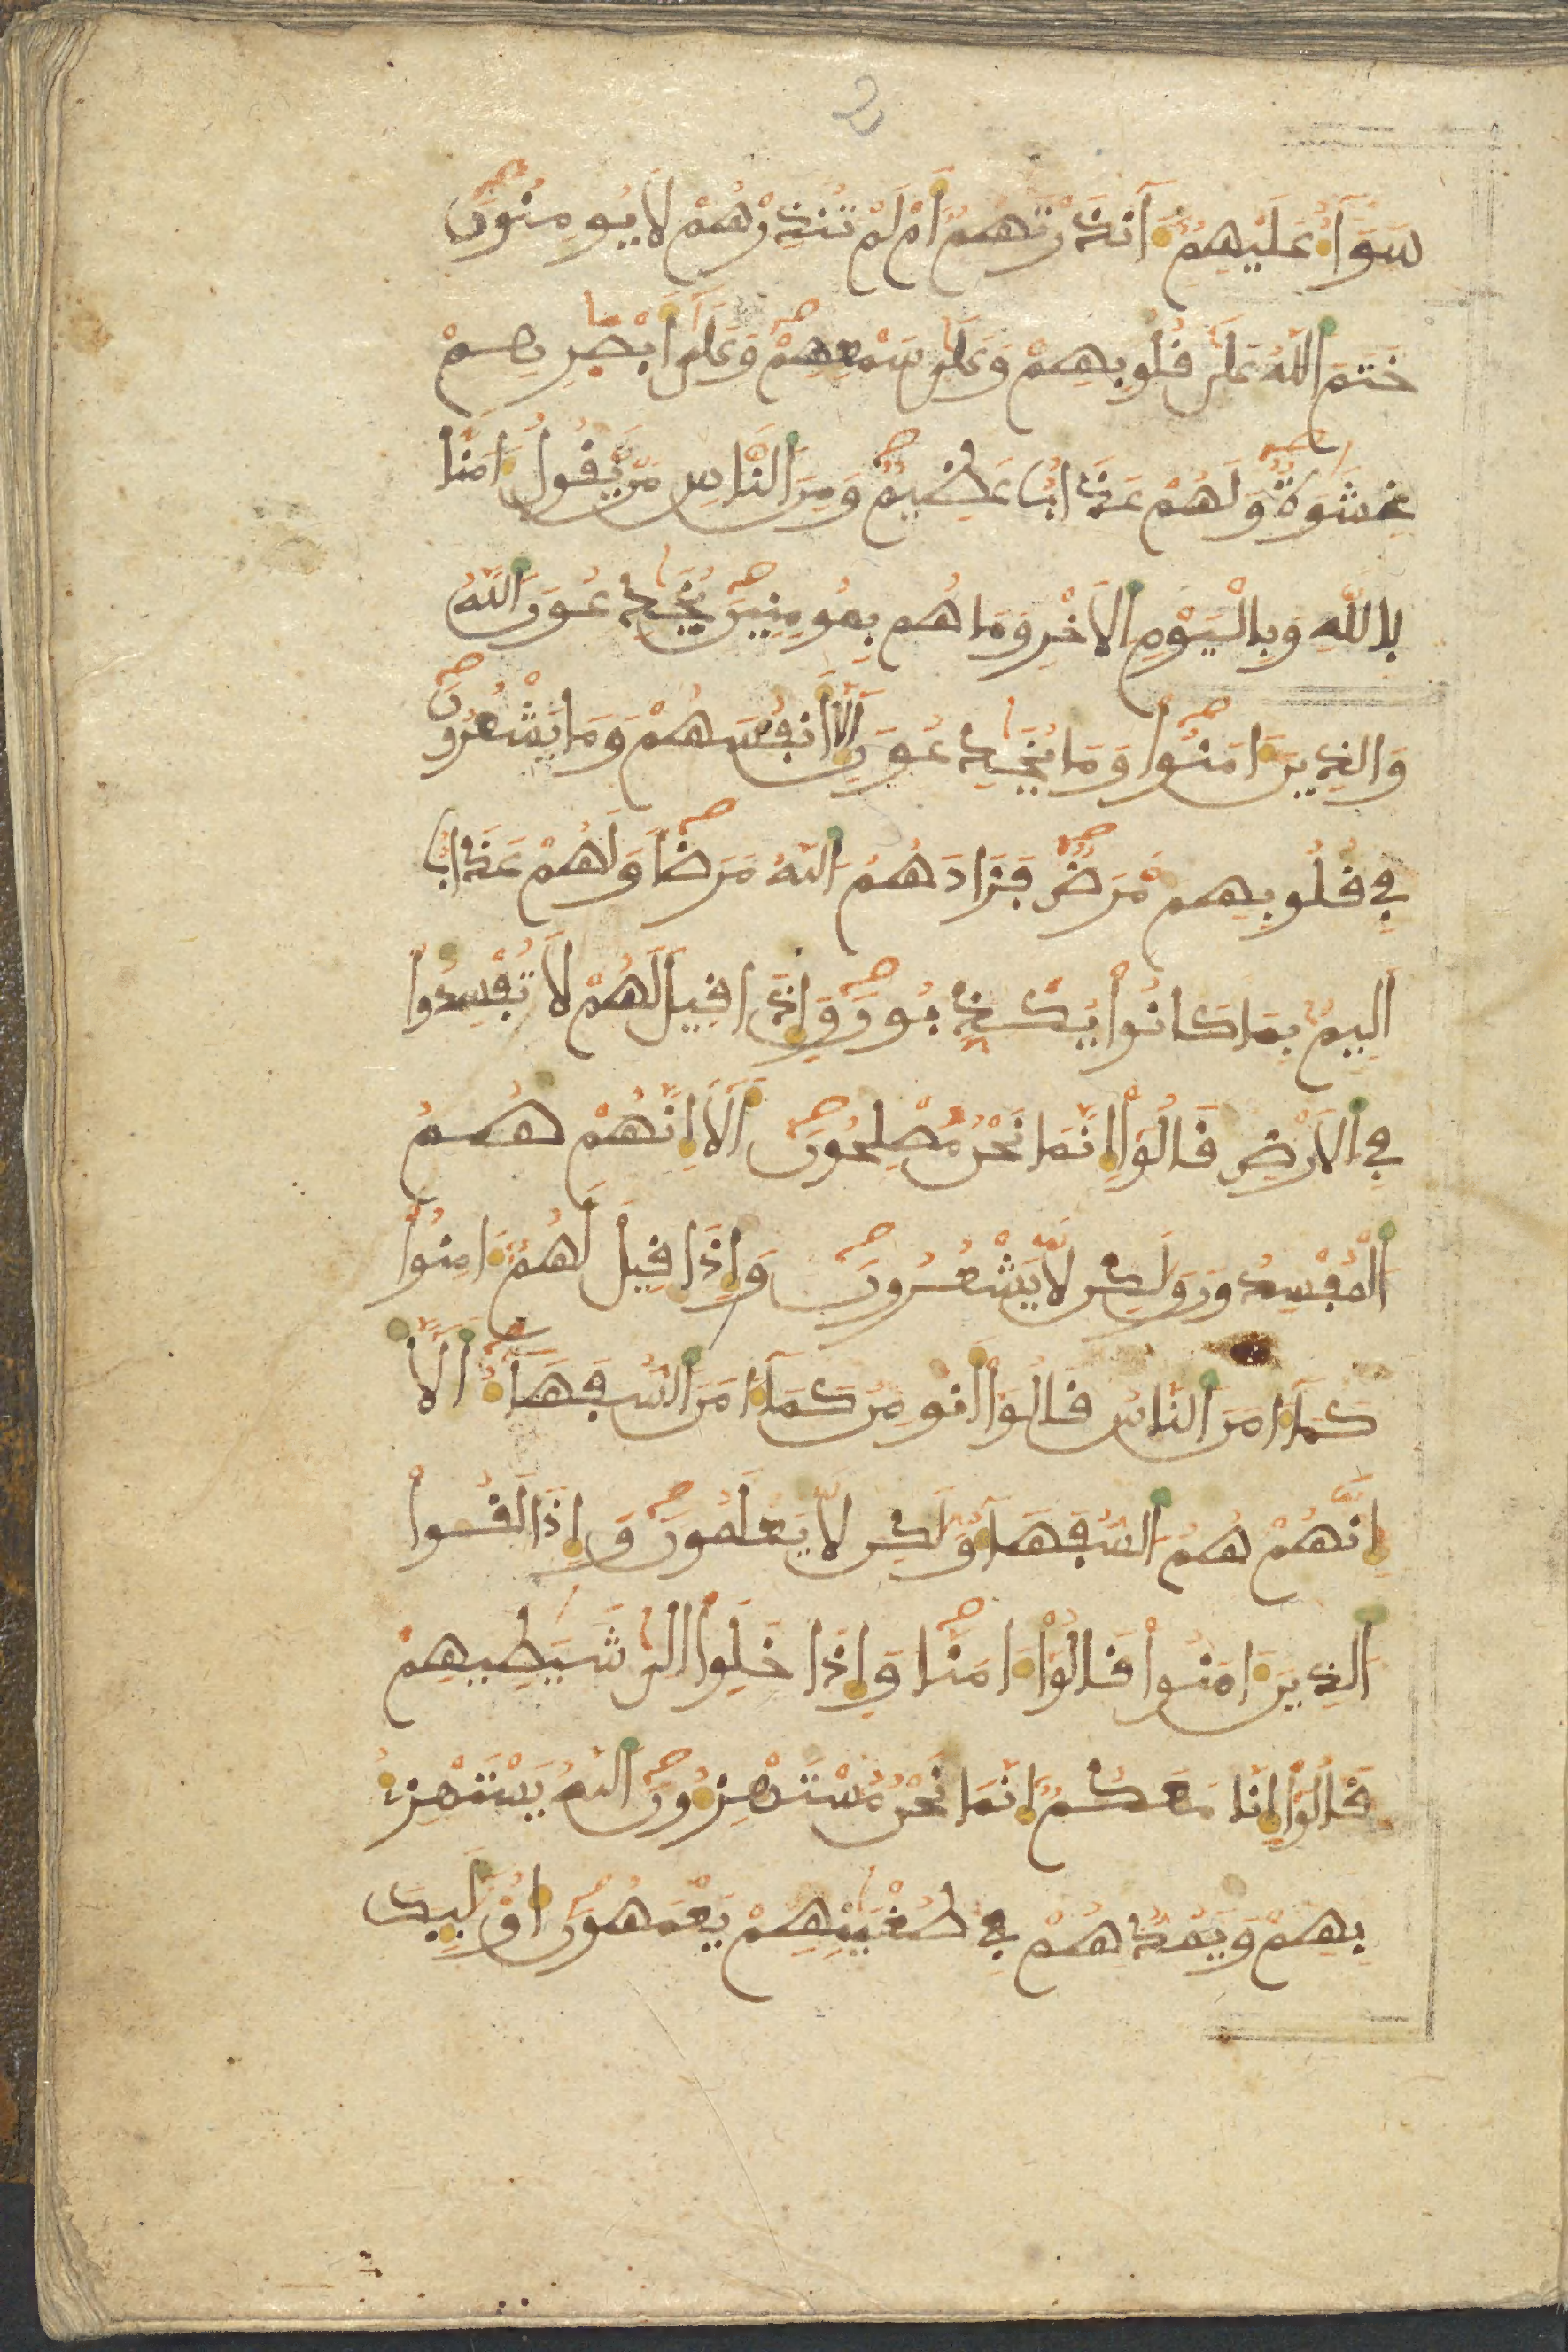 2
سَوَآءٌ عَلَيْهِمُۥٓ ءَآنذَرْتَهُمُۥٓ أَمْ لَمْ تُنذِرْهُمْ لَا يُومِنُونَ
خَتَمَ اَللَّهُ عَلَىٰ قُلُوبِهِمْ وَعَلَىٰ سَمْعِهِمْ وَعَلَىٰٓ أَبْصَٰرِهِمْ
غِشَٰوَةٌ وَلَهُمْ عَذَابٌ عَظِيمٌ وَمِنَ اَلنَّاسِ مَنْ يَّقُولُ ءَامَنَّا
بِاللَّهِ وَبِالْيَوْمِ اِلَاخِرِ وَمَا هُم بِمُومِنِينَ يُخَٰدِعُونَ اَللَّهَ
وَالذِينَ ءَامَنُوا وَمَا يُخَٰدِعُونَ إِلَّآ أَنفُسَهُمْ وَمَا يَشْعُرُونَ
فِي قُلُوبِهِم مَّرَضٌ فَزَادَهُمُ اُللَّهُ مَرَضًا وَلَهُمْ عَذَابٌ
اَلِيمٌ بِمَا كَانُوا يُكَذِّبُونَ وَإِذَا قِيلَ لَهُمْ لَا تُفْسِدُوا
فِي اِلَارْضِ قَالُوٓا إِنَّمَا نَحْنُ مُصْلِحُونَ أَلَآ إِنَّهُمْ هُمُ
اُلْمُفْسِدُونَ وَلَٰكِن لَّا يَشْعُرُونَ وَإِذَا قِيلَ لَهُمُۥٓ ءَامِنُوا
كَمَآ ءَامَنَ اَلنَّاسُ قَالُوٓا أَنُومِنُ كَمَآ ءَامَنَ اَلسُّفَهَآءُ اَلَآ
إِنَّهُمْ هُمُ اُلسُّفَهَآءُ وَلَٰكِن لَّا يَعْلَمُونَ وَإِذَا لَقُوا
اُلذِينَ ءَامَنُوا قَالُوٓا ءَامَنَّا وَإِذَا خَلَوِا اِلَىٰ شَيَٰطِينِهِمْ
قَالُوٓا إِنَّا مَعَكُمُۥٓ إِنَّمَا نَحْنُ مُسْتَهْزِءُونَ اَللَّهُ يَسْتَهْزِئُ
بِهِمْ وَيَمُدُّهُمْ فِي طُغْيَٰنِهِمْ يَعْمَهُونَ أُوْلَٰٓئِكَ